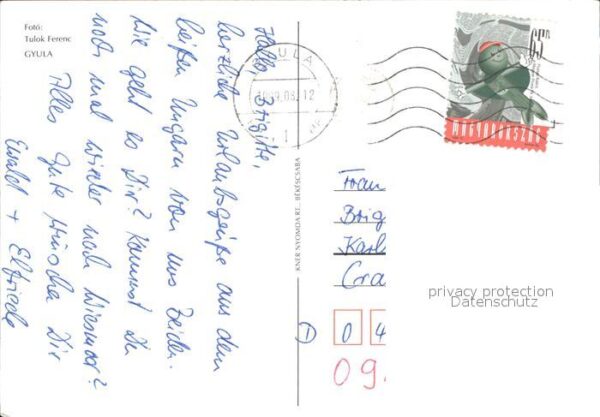 Fotó:
Tulok Ferenc
GYULA
Hallo Brigitte,
herzliche Urlaubsgrüße aus dem
heißen Ungarn von uns Beiden.
Wie geht es Dir? Kommst Du
noch mal wieder nach Wiesmoor?
Alles Gute wünschen Dir
Ewald + Elfriede
KNER NYOMDA RT., BÉKÉSCSABA
GYULA
1
65 Ft
MAGYARORSZÁG
Frau
Brig
Karl
Gra
D 0 4
09.
privacy protection
Datenschutz